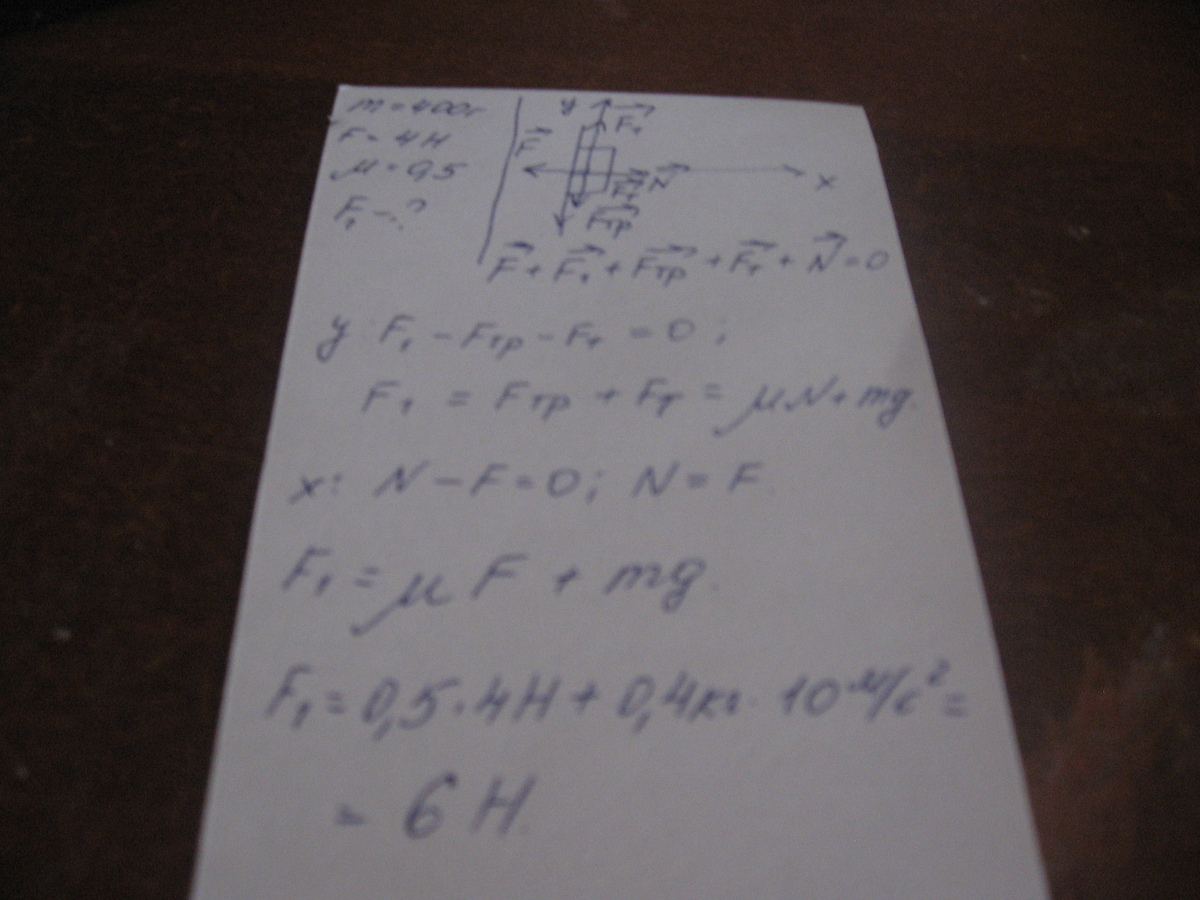 m = 400г
F = 4Н
μ = 0,5
F₁ - ?
y F₁
F
N x
Fт
Fтр
F + F₁ + Fтр + Fт + N = 0
y: F₁ - Fтр - Fт = 0 ;
F₁ = Fтр + Fт = μN + mg.
x: N - F = 0; N = F.
F₁ = μ F + mg.
F₁ = 0,5 · 4Н + 0,4кг · 10 м/с² =
= 6 Н.